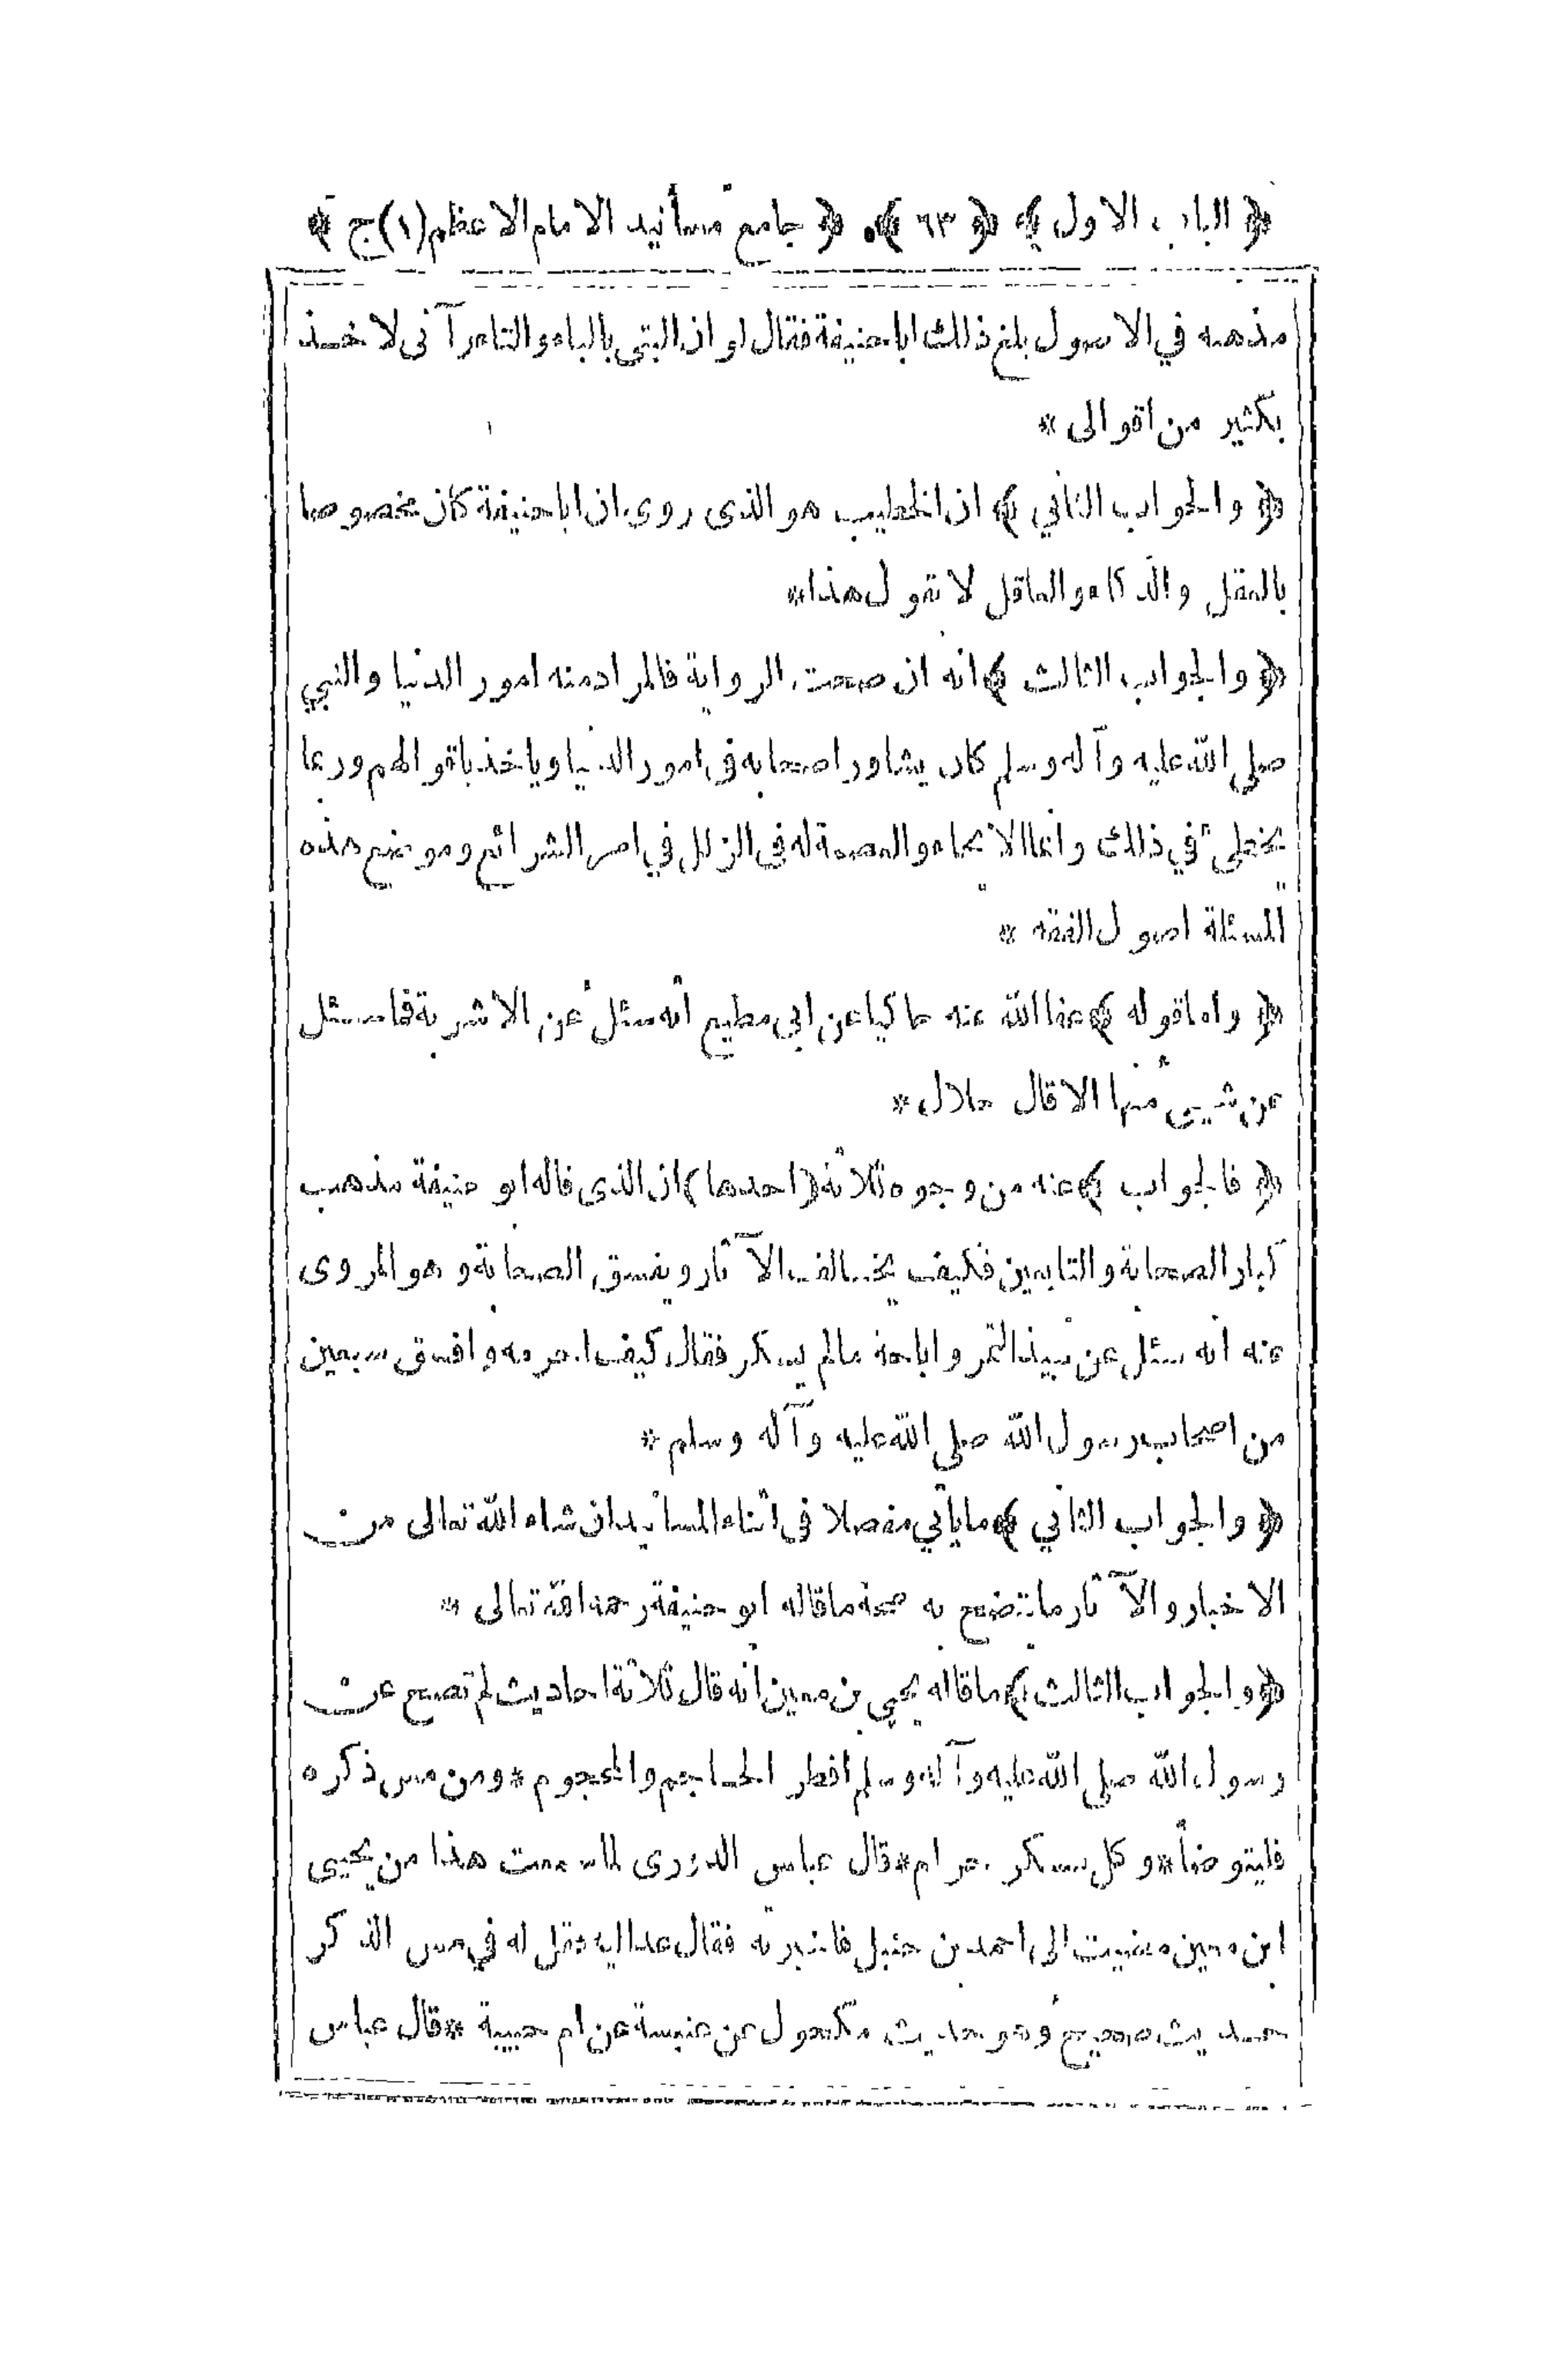 ﴿ الباب الاول ﴾ ﴿ ٦٣ ﴾ ﴿ جامع مسانيد الامام الاعظم(١)ج ﴾
مذهبه في الاصول بلغ ذلك اباحنيفة فقال لو ان البتى بالباء والتاء رآنى لاخذ
بكثير من اقوالى *
﴿ والجواب الثاني ﴾ ان الخطيب هو الذى روى ان اباحنيفة كان مخصوصا
بالعقل والذكاء والعاقل لا يقول هذا *
﴿ والجواب الثالث ﴾ انه ان صحت الرواية فالمراد منه امور الدنيا والنبي
صلى الله عليه وآله وسلم كان يشاور اصحابه فى امور الدنيا وياخذ باقوالهم وربما
يخطئ في ذلك وانما الانبياء والعصمة له فى الزلل في امر الشرائع وموضع هذه
المسئلة اصول الفقه *
﴿ واما قوله ﴾ عفا الله عنه حاكيا عن ابى مطيع انه سئل عن الاشربة فما سئل
عن شيئ منها الا قال حلال *
﴿ فالجواب ﴾ عنه من وجوه ثلاثة (احدها) ان الذى قاله ابو حنيفة مذهب
كبار الصحابة والتابعين فكيف يخالف الآثار ويفسق الصحابة وهو المروى
عنه انه سئل عن نبيذ التمر واباحة مالم يسكر فقال كيف احرمه وافسق سبعين
من اصحاب رسول الله صلى الله عليه وآله وسلم *
﴿ والجواب الثاني ﴾ ما يأتي مفصلا فى اثناء المسانيد ان شاء الله تعالى من
الاخبار والآثار ما تتضح به صحة ما قاله ابو حنيفة رحمه الله تعالى *
﴿ والجواب الثالث ﴾ ما قاله يحيى بن معين انه قال ثلاثة احاديث لم تصح عن
رسول الله صلى الله عليه وآله وسلم افطر الحاجم والمحجوم * ومن مس ذكره
فليتوضأ * وكل مسكر حرام * قال عباس الدورى لما سمعت هذا من يحيى
ابن معين مضيت الى احمد بن حنبل فاخبرته فقال عد اليه وقل له في مس الذكر
حديث صحيح وهو حديث مكحول عن عنبسة عن ام حبيبة * قال عباس